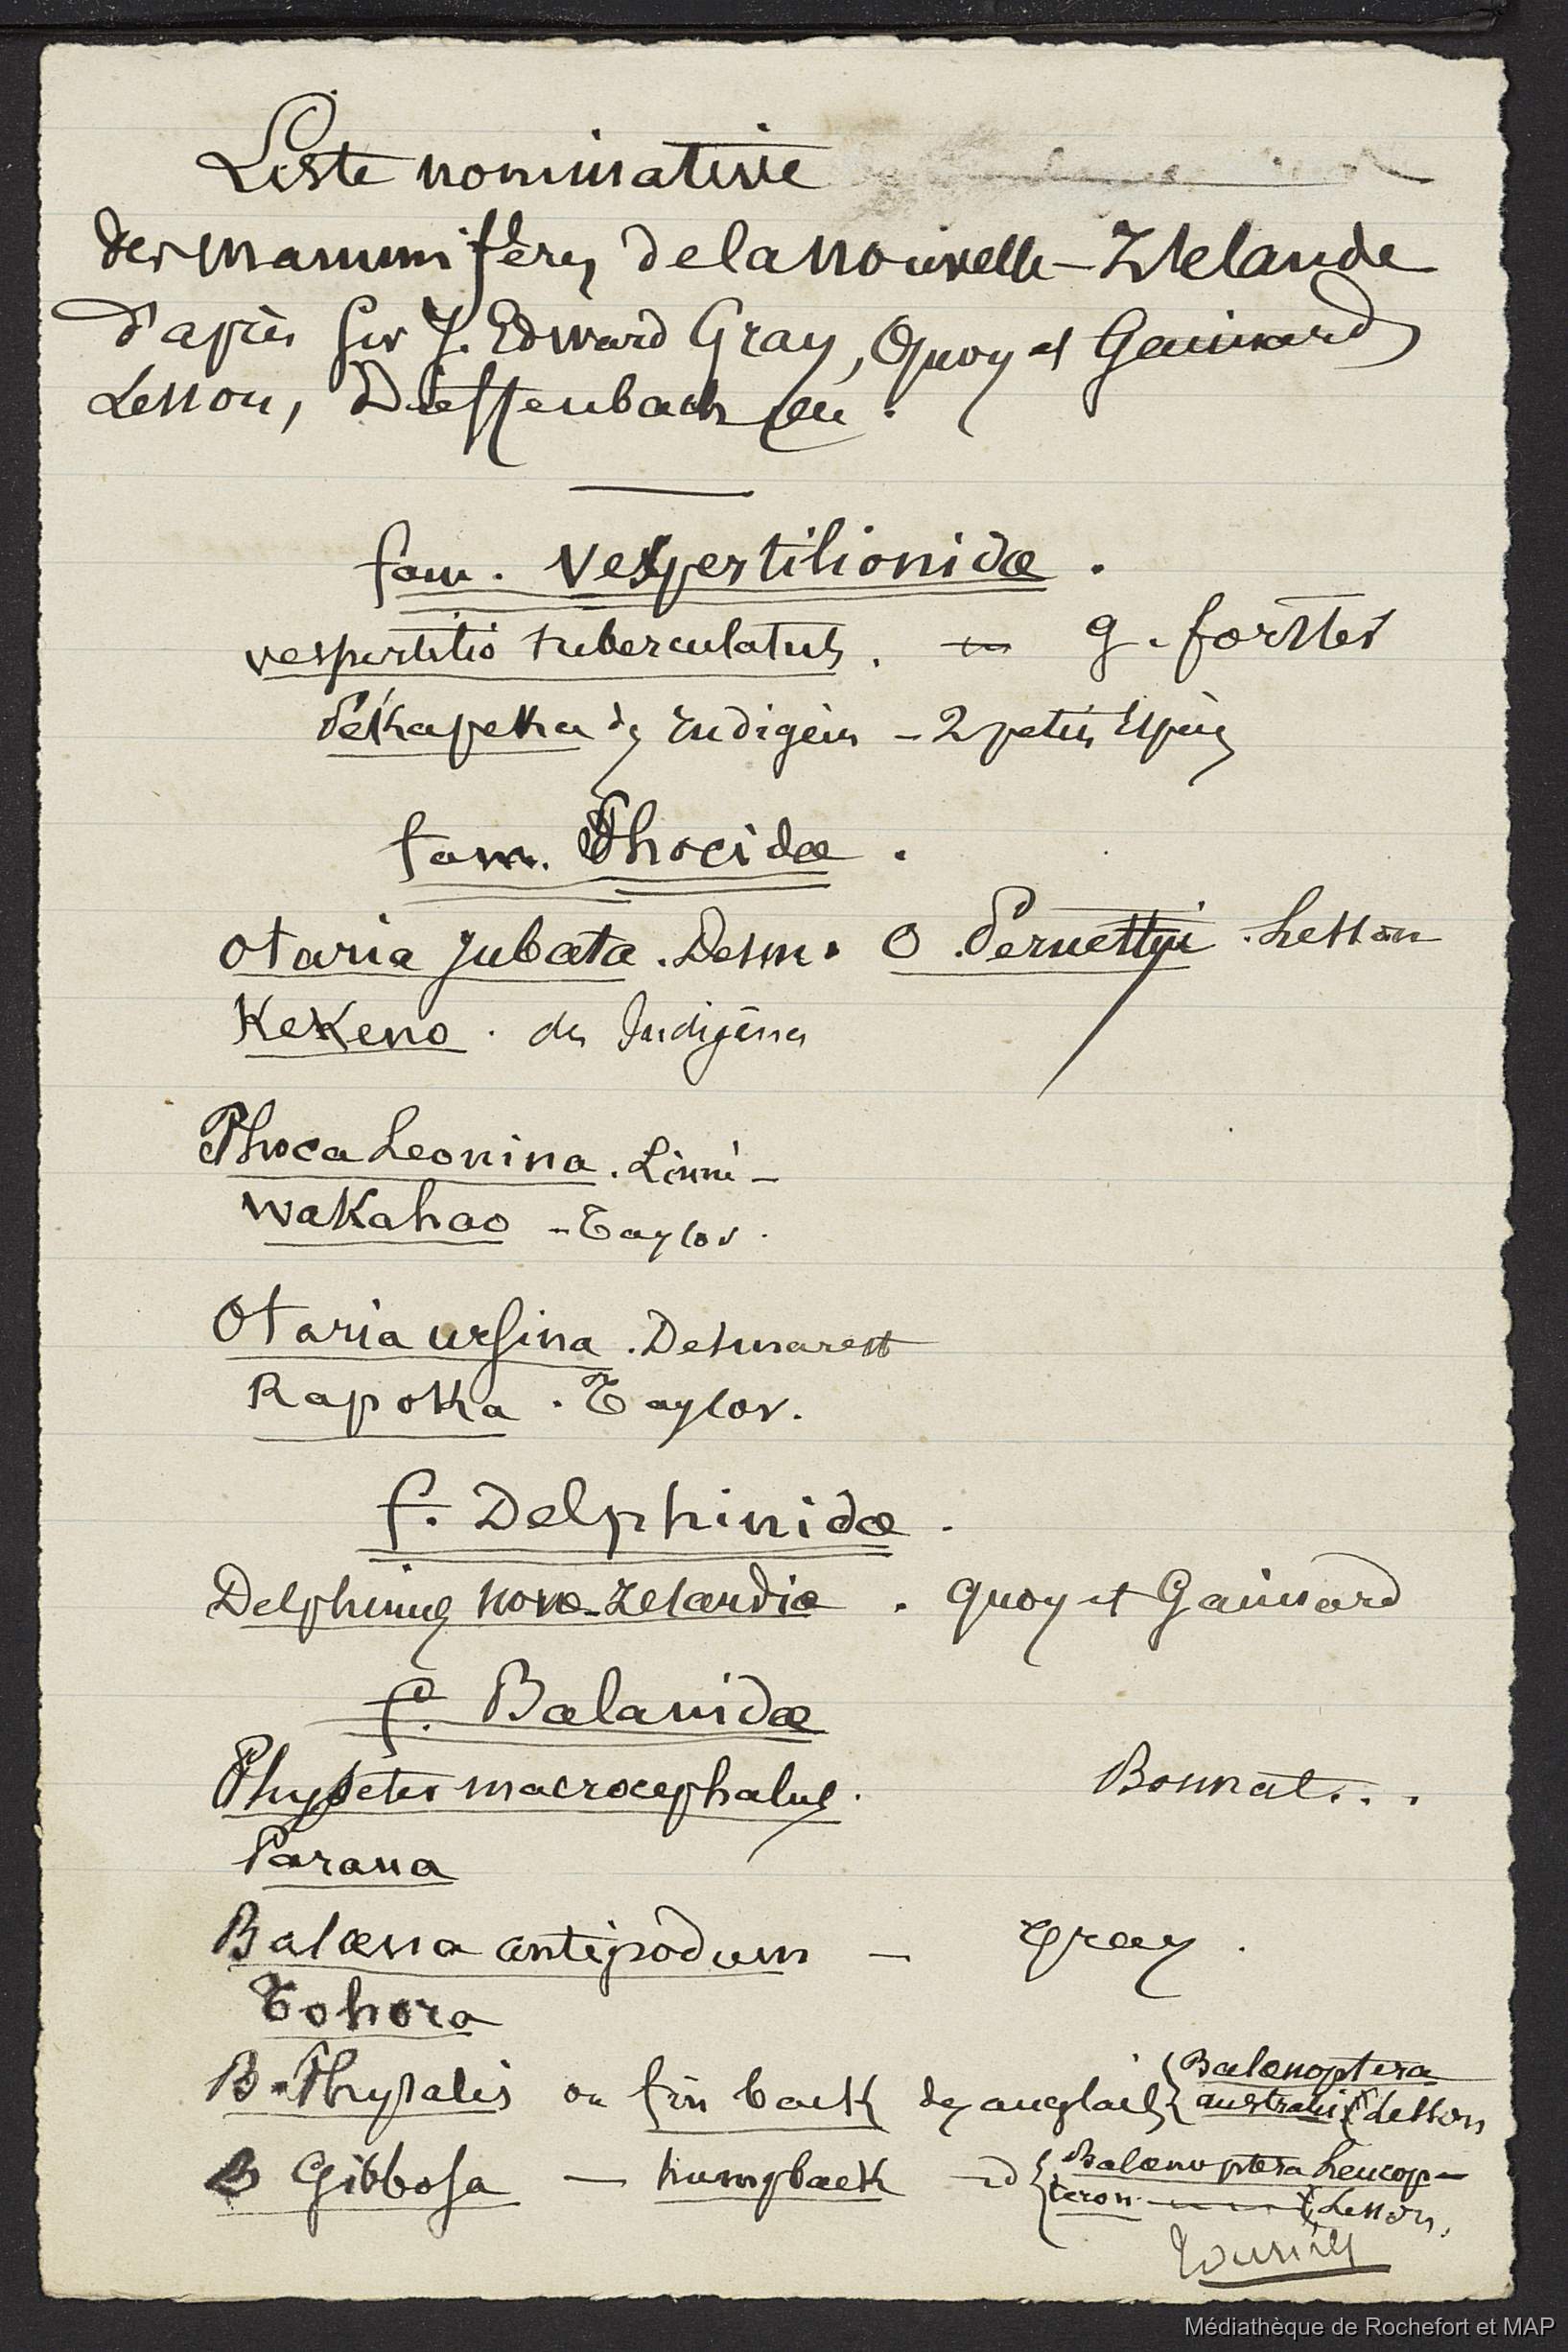 Liste nominative
des mammifères de la nouvelle-Zélande
d'après Sir J. Edward Gray, Quoy et Gaimard
Lesson, Dieffenbach
fam. Vespertilionidæ.
vespertilio tuberculatus. — g. forster
Pékapeka des Indigènes - 2 petites Espèces
fam. Phocidæ.
Otaria jubata. Desm. O. Pernettyi. Lesson
KeKeno. des Indigènes
Phoca Leonina. Linné -
WaKahao - Taylor.
Otaria ursina. Desmarest
Rapoka. Taylor.
f. Delphinidæ.
Delphinus novæ-Zelandiæ. Quoy et Gaimard
f. Balænidæ
Physeter macrocephalus. Bonnat...
Parana
Balæna antipodum — Gray.
Tohora
B. Physalis ou fin back des anglais { Balænoptera
australis { Lesson
B Gibbosa — humpback - id { Balænoptera Leucop-
teron { Lesson.
tournez
Médiathèque de Rochefort et MAP